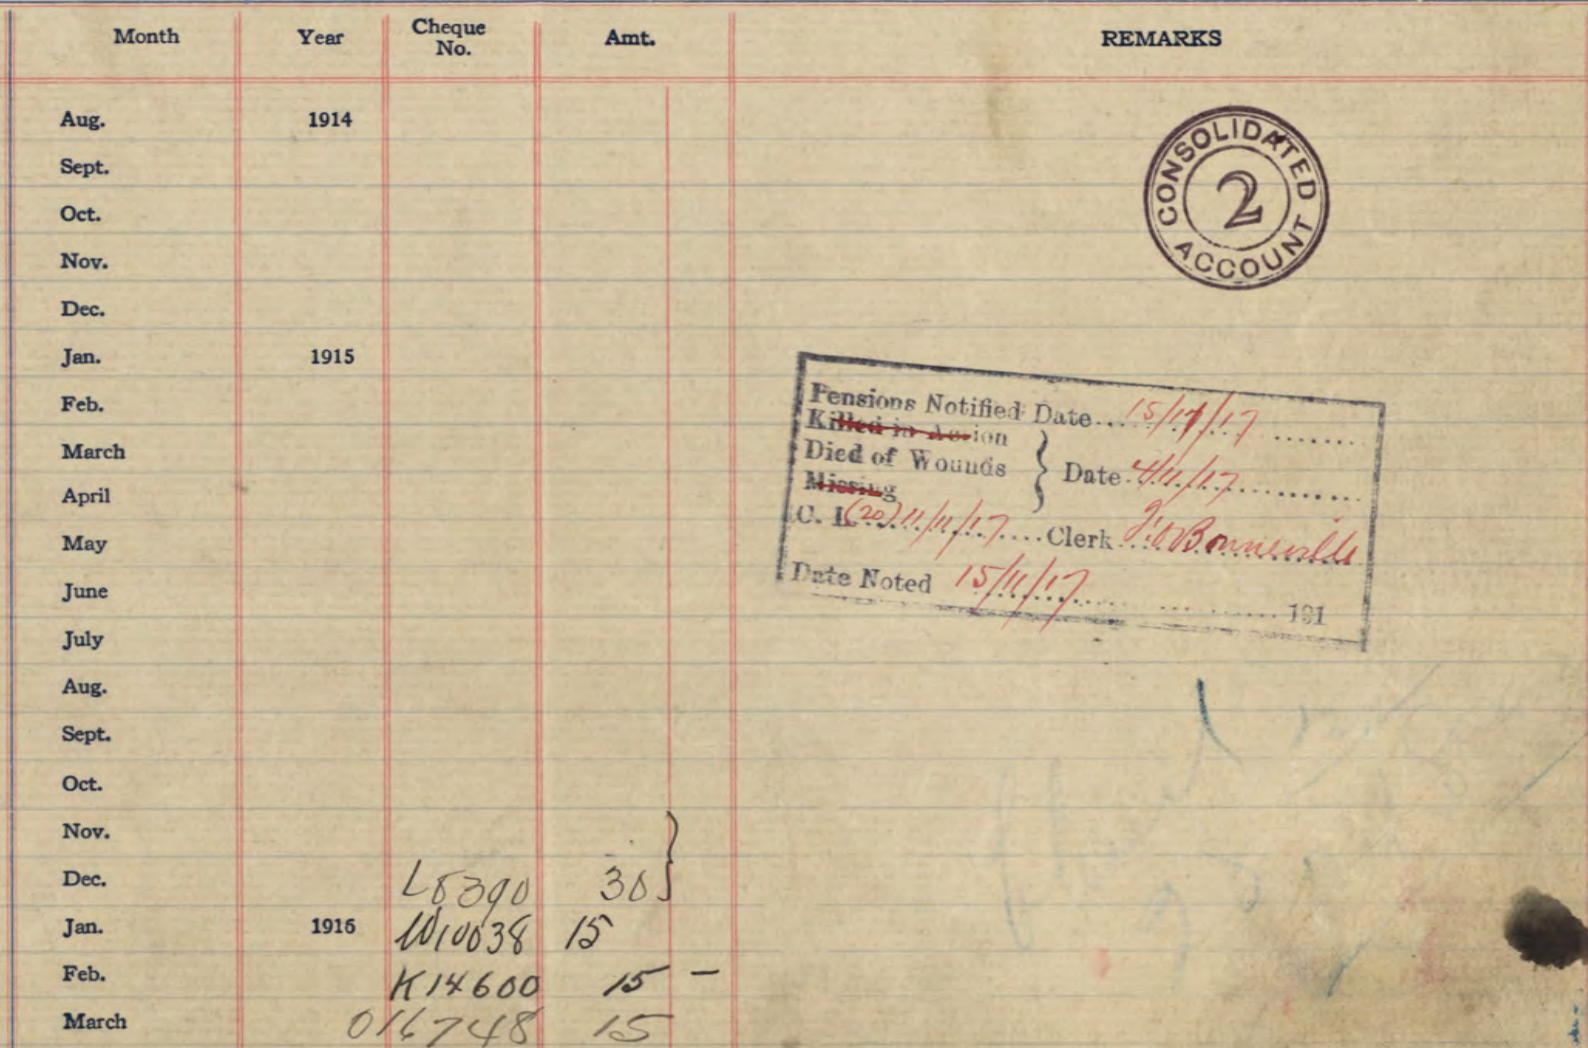 Month Year Cheque No. Amt. REMARKS
Aug. 1914
Sept.
Oct.
Nov.
Dec.
Jan. 1915
Feb.
March
April
May
June
July
Aug.
Sept.
Oct.
Nov.
Dec. L5390 30
Jan. 1916 W10038 15
Feb. K14600 15 –
March 016748 15
CONSOLIDATED ACCOUNT
2
Pensions Notified Date 15/11/17
Killed in Action
Died of Wounds } Date 4/11/17
Missing
C. L. (20) 11/11/17 Clerk Bonneville
Date Noted 15/11/17 191